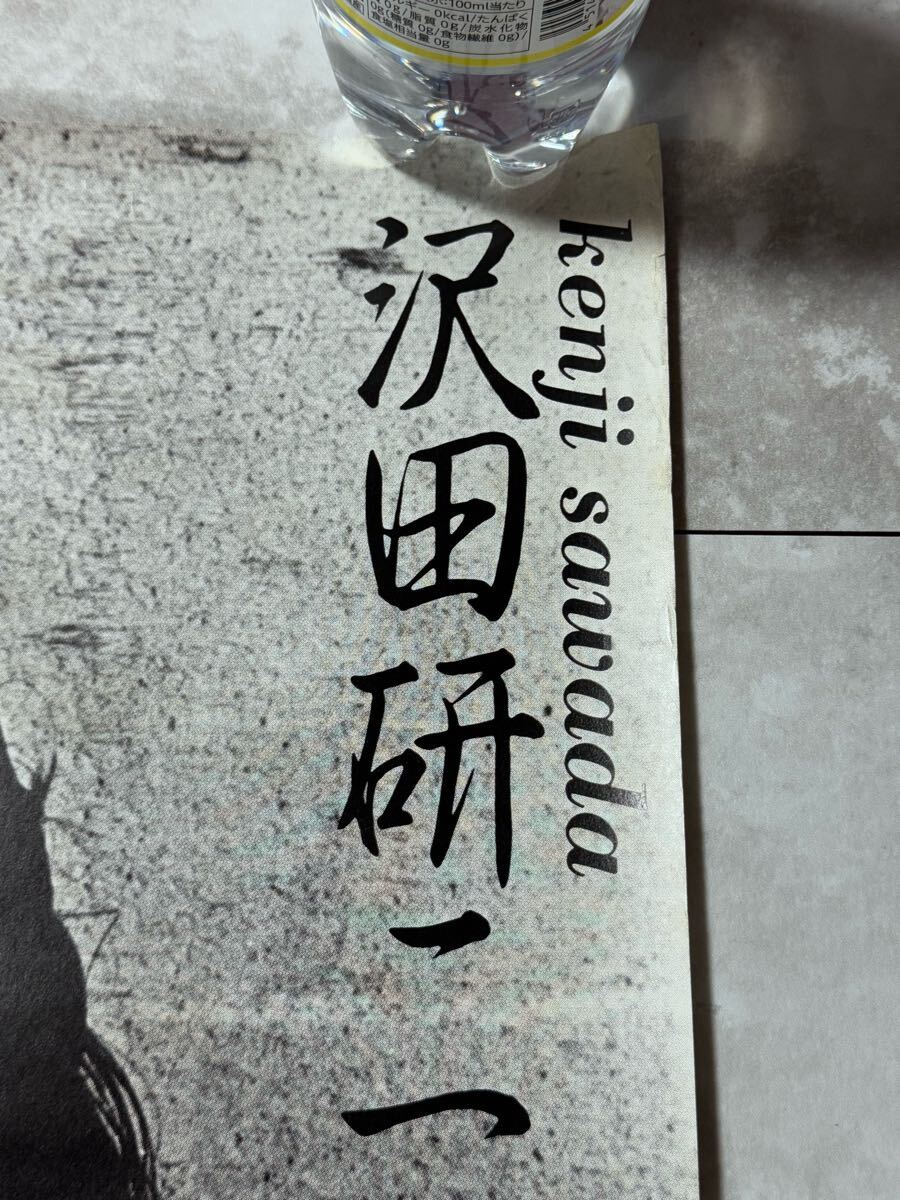 kenji sawada
沢田研二
100ml当たり
0kcal/たんぱく
0g/脂質 0g/炭水化物
0g(糖質 0g/食物繊維 0g)/
食塩相当量 0g